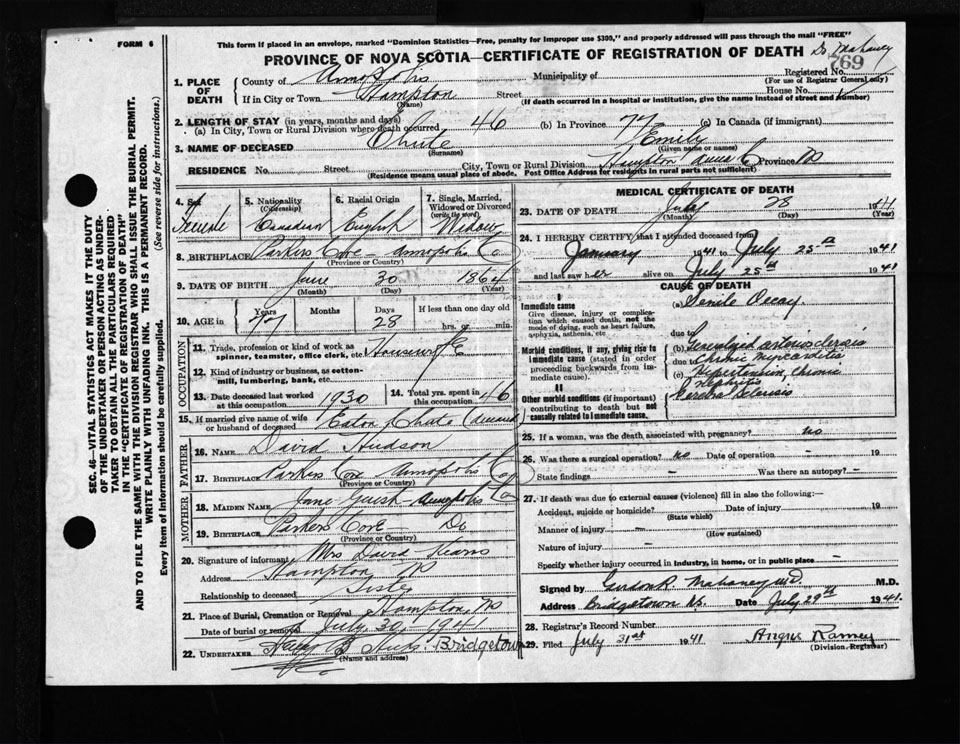 FORM 6
This form if placed in an envelope, marked "Dominion Statistics—Free, penalty for improper use $300," and properly addressed will pass through the mail "FREE"
PROVINCE OF NOVA SCOTIA—CERTIFICATE OF REGISTRATION OF DEATH
Dr. Mahaney
Registered No. 769
(For use of Registrar General only)
1. PLACE OF DEATH
County of Annapolis
Municipality of
If in City or Town Hampton Street House No.
(Name) (If death occurred in a hospital or institution, give the name instead of street and number)
2. LENGTH OF STAY (in years, months and days)
(a) In City, Town or Rural Division where death occurred 46 (b) In Province 77 (c) In Canada (if immigrant)
3. NAME OF DECEASED Chute Emily
(Surname) (Given name or names)
RESIDENCE No. Street City, Town or Rural Division Hampton Anna Co Province NS
(Residence means usual place of abode. Post Office Address for residents in rural parts not sufficient)
4. Sex Female
5. Nationality (Citizenship) Canadian
6. Racial Origin English
7. Single, Married, Widowed or Divorced (write the word) Widow
8. BIRTHPLACE Parkers Cove – Annapolis Co
(Province or Country)
9. DATE OF BIRTH 30 1864
(Month) (Day) (Year)
10. AGE in Years 77 Months Days 28 If less than one day old hrs. or min.
OCCUPATION
11. Trade, profession or kind of work as spinner, teamster, office clerk, etc. Housewife
12. Kind of industry or business, as cotton-mill, lumbering, bank, etc.
13. Date deceased last worked at this occupation 1930 14. Total yrs. spent in this occupation 46
15. If married give name of wife or husband of deceased Eaton Chute (deceased
FATHER
16. NAME David Hudson
17. BIRTHPLACE Parkers Cove – Annapolis Co
(Province or Country)
MOTHER
18. MAIDEN NAME Jane – Annapolis Co
19. BIRTHPLACE Parkers Cove – Do
(Province or Country)
20. Signature of informant Mrs David Hearns
Address Hampton NS
Relationship to deceased Sister
21. Place of Burial, Cremation or Removal Hampton, NS
Date of burial or removal July, 30, 1941
22. UNDERTAKER Bridgetown
(Name and address)
MEDICAL CERTIFICATE OF DEATH
23. DATE OF DEATH July 28 1941
(Month) (Day) (Year)
24. I HEREBY CERTIFY that I attended deceased from
January 1941 to July 25th 1941
and last saw her alive on July 25th 1941
CAUSE OF DEATH
Immediate cause
Give disease, injury or complication which caused death, not mode of dying, such as heart failure, asphyxia, asthenia, etc.
(a) Senile Decay
due to
Morbid conditions, if any, giving rise to immediate cause (stated in order proceeding backwards from immediate cause).
(b) Generalized arteriosclerosis
due to Chronic myocarditis
(c) Hypertension, chronic nephritis
II
Other morbid conditions (if important) contributing to death but not causally related to immediate cause.
25. If a woman, was the death associated with pregnancy? no
26. Was there a surgical operation? no Date of operation - 19
State findings – Was there an autopsy? –
27. If death was due to external causes (violence) fill in also the following:—
Accident, suicide or homicide? Date of injury 19
(State which)
Manner of injury –
(How sustained)
Nature of injury –
Specify whether injury occurred in industry, in home, or in public place –
Signed by Gordon R. Mahaney MD M.D.
Address Bridgetown NS. Date July 29th 1941.
28. Registrar's Record Number
29. Filed July 31st 1941 Angus Ramey
(Division Registrar)
SEC. 46—VITAL STATISTICS ACT MAKES IT THE DUTY
OF THE UNDERTAKER OR PERSON ACTING AS UNDER-
TAKER TO OBTAIN ALL THE PARTICULARS REQUIRED
IN THE "CERTIFICATE OF REGISTRATION OF DEATH"
AND TO FILE THE SAME WITH THE DIVISION REGISTRAR WHO SHALL ISSUE THE BURIAL PERMIT.
WRITE PLAINLY WITH UNFADING INK. THIS IS A PERMANENT RECORD.
Every item of information should be carefully supplied. (See reverse side for instructions.)